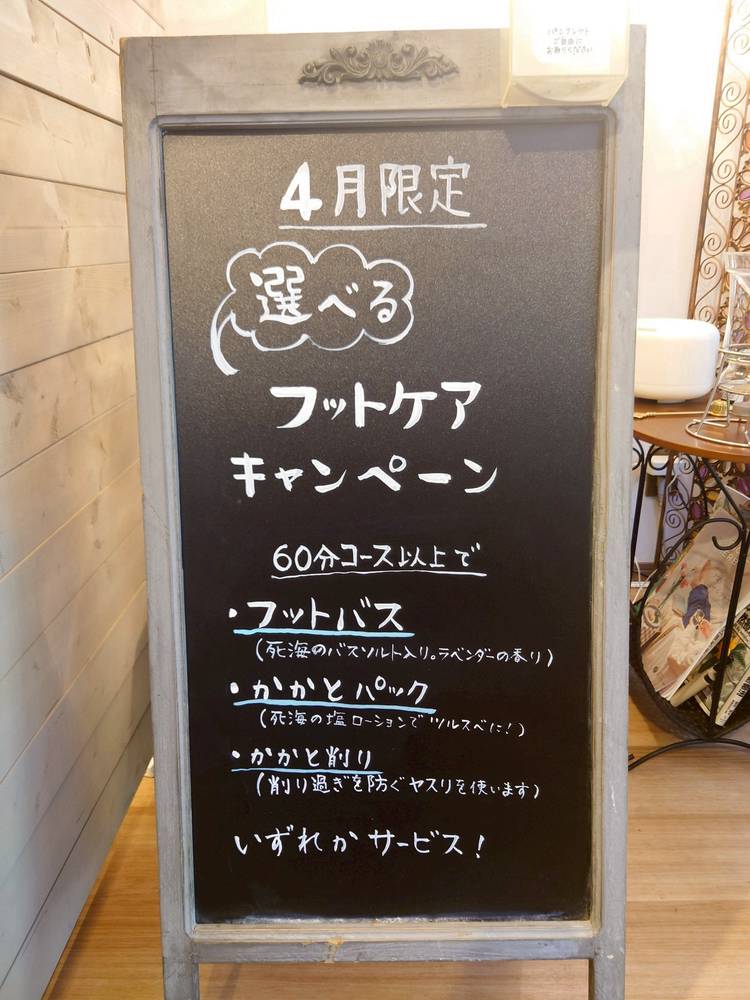 パンフレット
ご自由に
お取りください
4月限定
選べる
フットケア
キャンペーン
60分コース以上で
・フットバス
(死海のバスソルト入り。ラベンダーの香り)
・かかとパック
(死海の塩ローションでツルスベに!)
・かかと削り
(削り過ぎを防ぐヤスリを使います)
いずれかサービス!